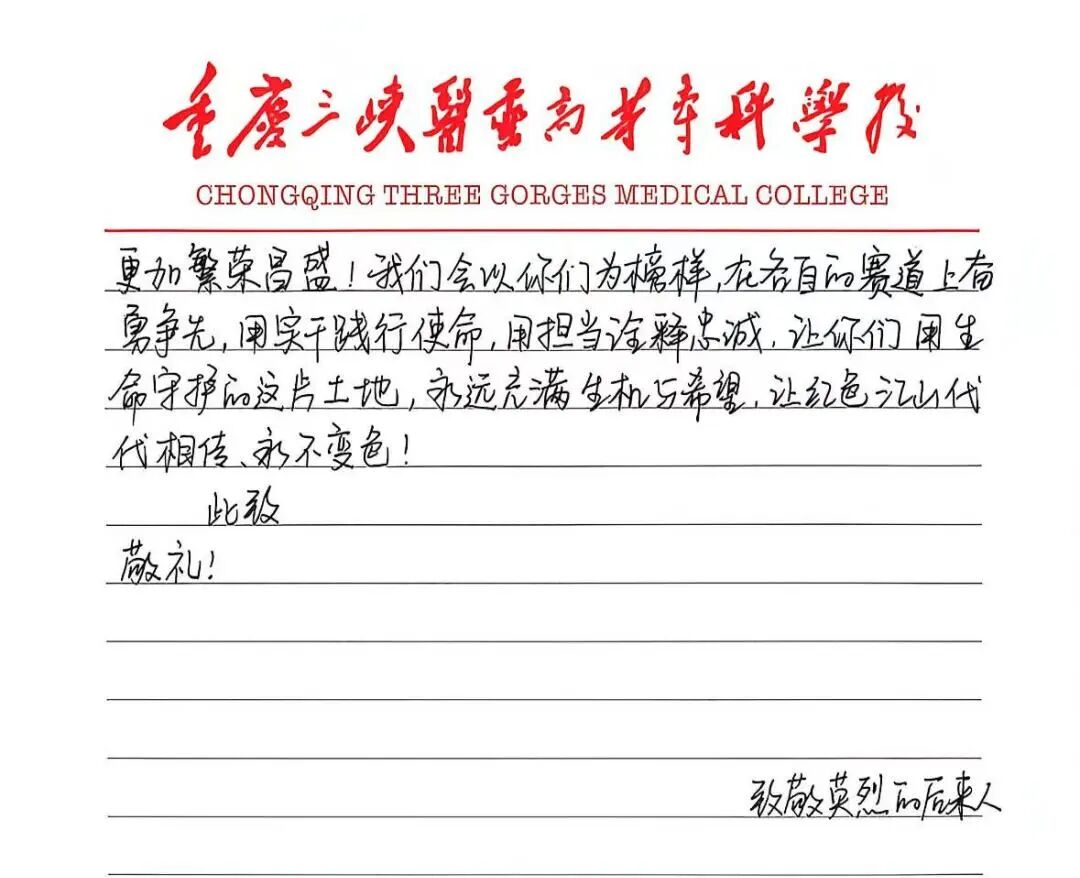 重慶三峡醫藥高等専科學校
CHONGQING THREE GORGES MEDICAL COLLEGE
更加繁荣昌盛！我们会以你们为榜样,在各自的赛道上奋
勇争先,用实干践行使命,用担当诠释忠诚,让你们用生
命守护的这片土地,永远充满生机与希望,让红色江山代
代相传、永不变色！
此致
敬礼！
致敬英烈的后来人